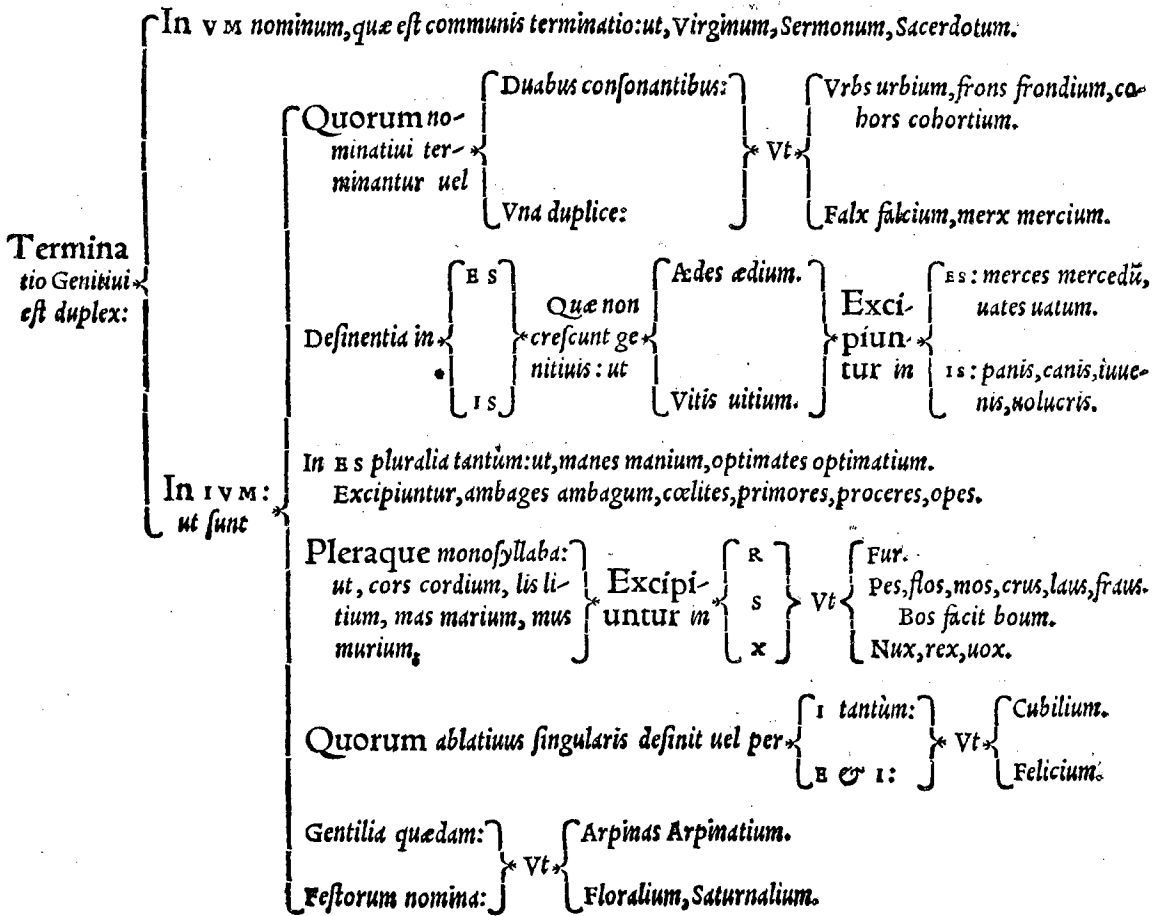 In VM nominum, quæ eſt communis terminatio: ut, Virginum, Sermonum, Sacerdotum.
Termina
tio Genitiui
eſt duplex:
Quorum no-
minatiui ter-
minantur uel
Duabus conſonantibus:
Vna duplice:
Vt
Vrbs urbium, frons frondium, co-
hors cohortium.
Falx falcium, merx mercium.
Deſinentia in
ES
IS
Quæ non
creſcunt ge
nitiuis: ut
Ædes ædium.
Vitis uitium.
Exci-
piun-
tur in
ES: merces mercedũ,
uates uatum.
IS: panis, canis, iuue-
nis, uolucris.
In IVM:
ut ſunt
In ES pluralia tantùm: ut, manes manium, optimates optimatium.
Excipiuntur, ambages ambagum, cœlites, primores, proceres, opes.
Pleraque monoſyllaba:
ut, cors cordium, lis li-
tium, mas marium, mus
murium,
Excipi-
untur in
R
S
X
Vt
Fur.
Pes, flos, mos, crus, laus, fraus.
Bos facit boum.
Nux, rex, uox.
Quorum ablatiuus ſingularis deſinit uel per
I tantùm:
E & I:
Vt
Cubilium.
Felicium.
Gentilia quædam:
Feſtorum nomina:
Vt
Arpinas Arpinatium.
Floralium, Saturnalium.